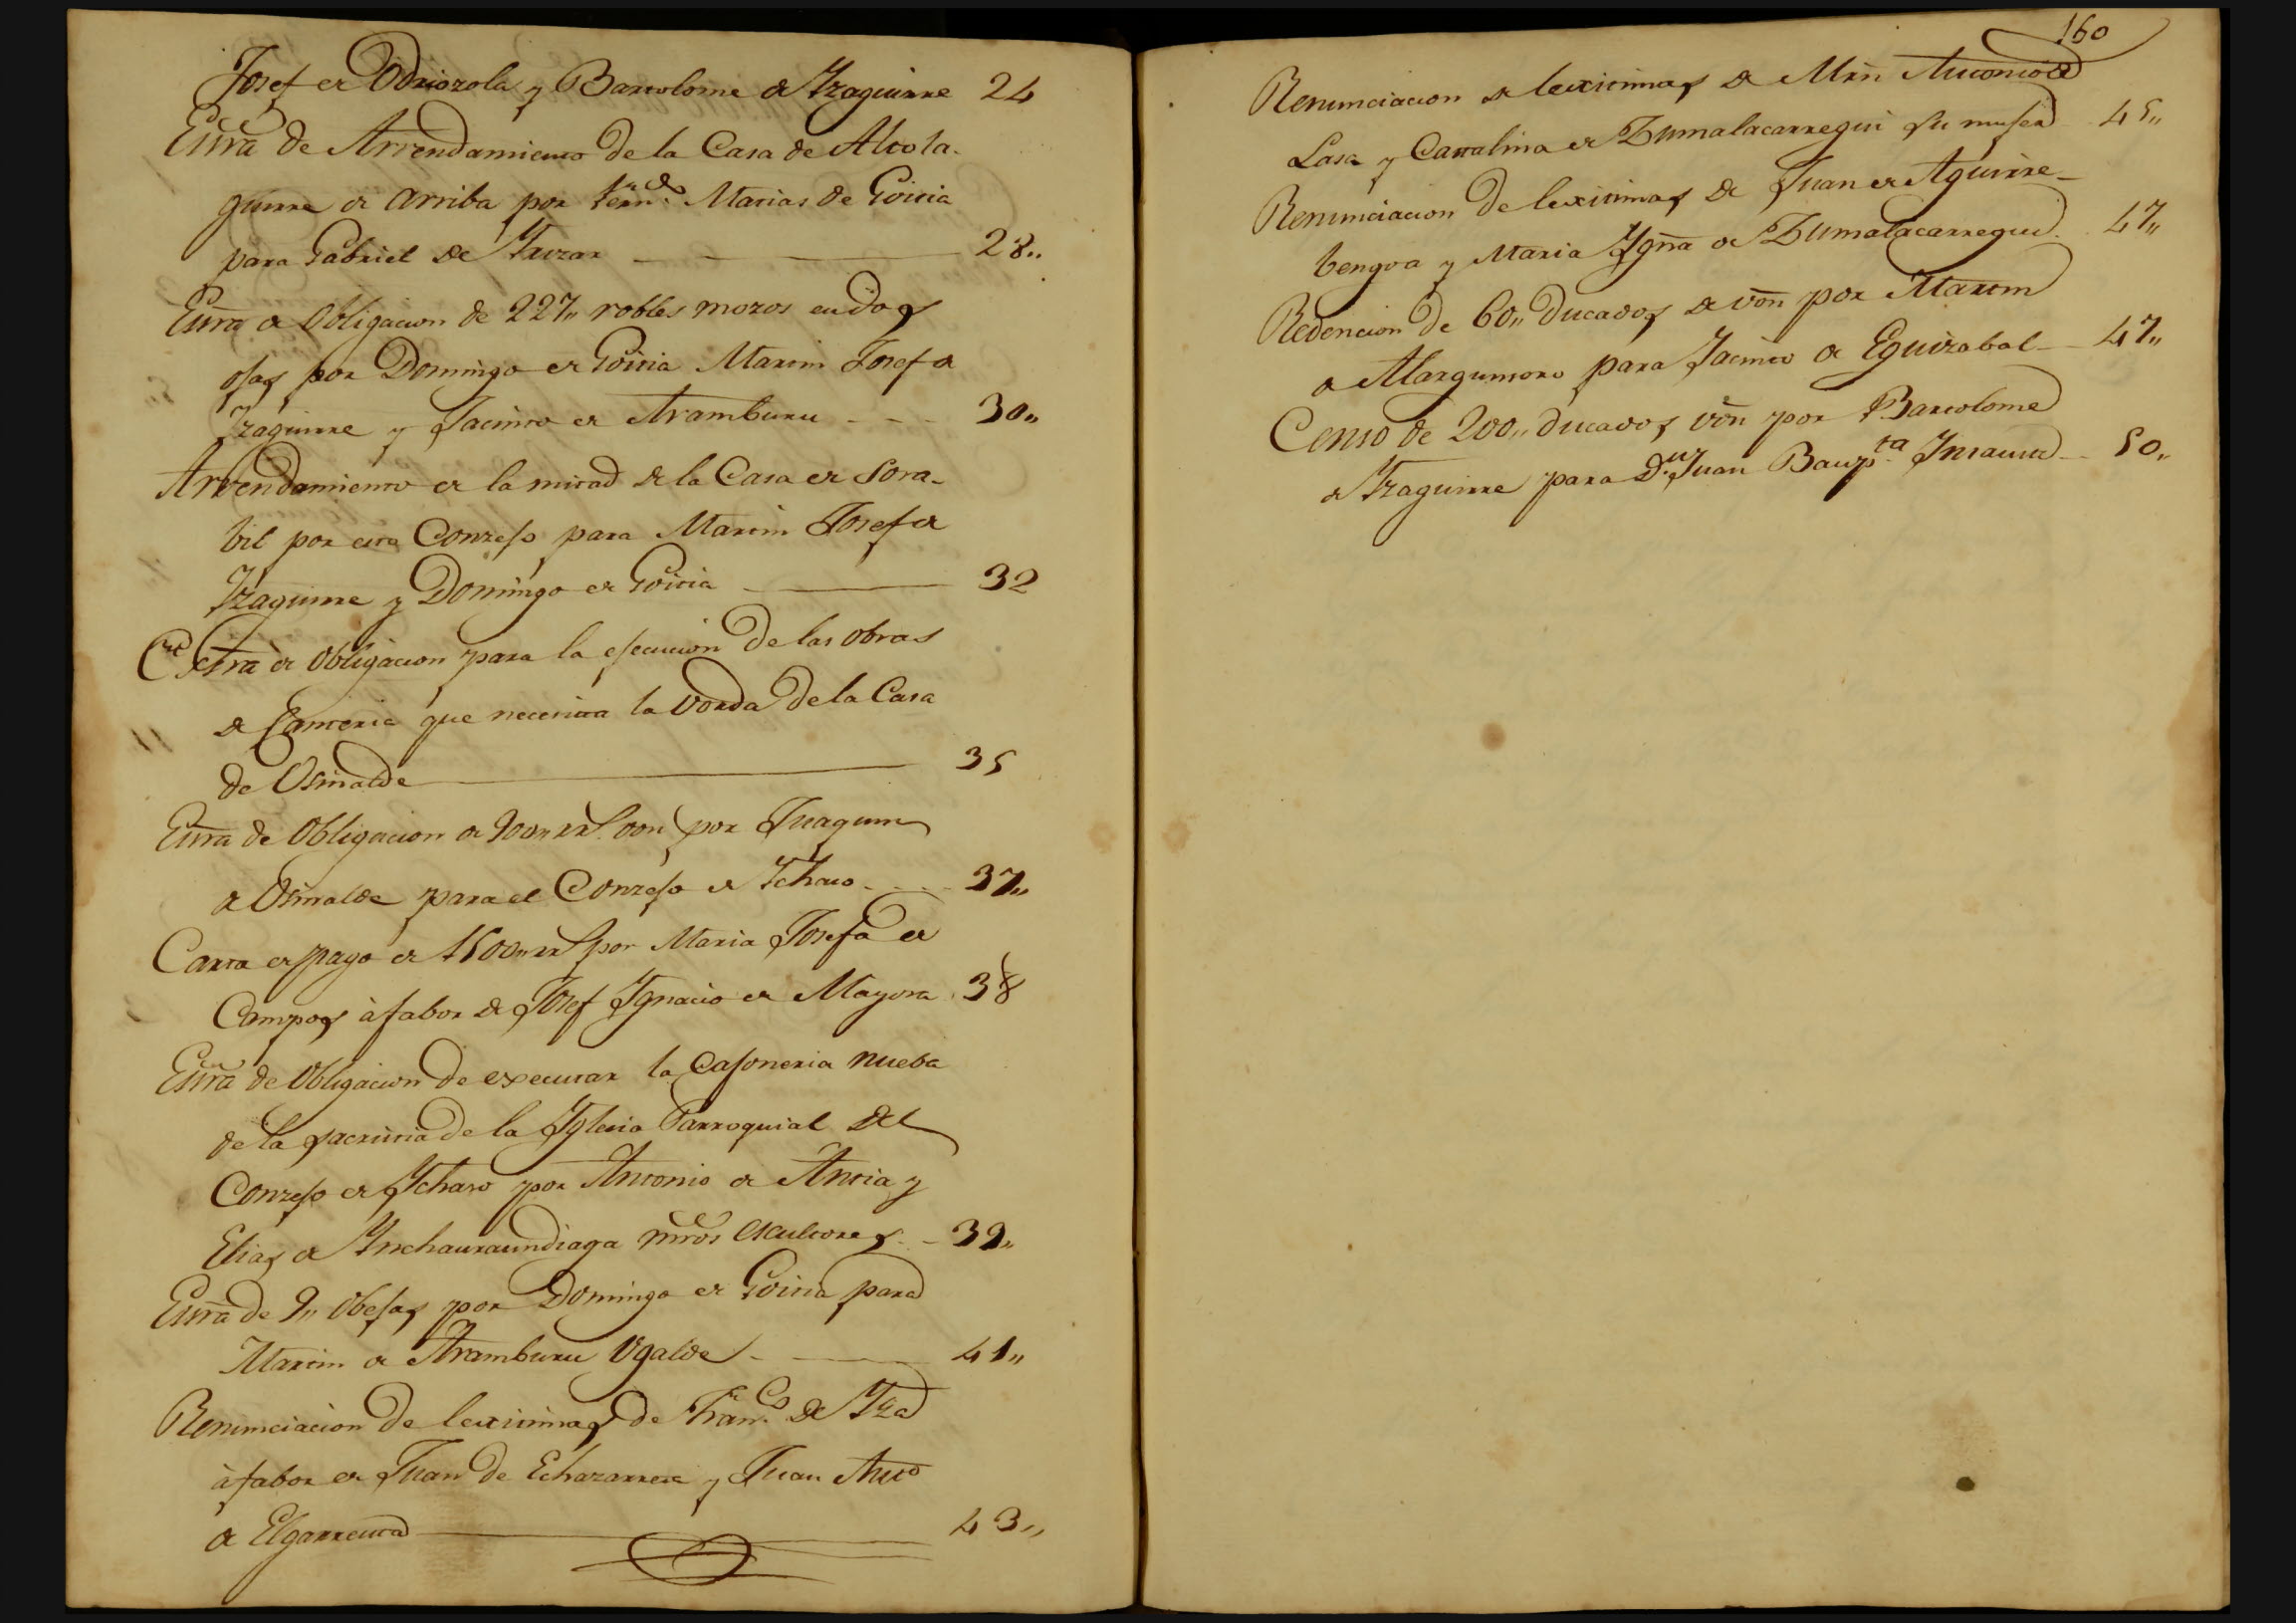 Josef de Odriozola y Bartolome de Yzaguirre 24
Esrra de Arrendamiento de la Casa de Alcola-
guirre de arriba por Fern.do Matias de Goicia
para Gabriel de Yrizar 28,,
Esrra de obligacion de 227,, robles mozos en dos
ojas por Domingo de Goicia Martin Josef de
Yzaguirre y Jacinto de Aramburu 30,,
Arrendamiento de la mitad de la Casa de Sora-
bil por este Conzejo para Martin Josef de
Yzaguirre y Domingo de Goicia 32
Esctra de obligacion para la ejecucion de las obras
de Canteria que necesita la borda de la Casa
de Osinalde 35
Esrra de obligacion de 900,, rrs von por Juaquin
de Osinalde para el Conzejo de Ychaso 37,,
Carta de pago de 1500,, rrs por Maria Josefa de
Campos à fabor de Josef Ygnacio de Mayora 38
Esrra de obligacion de executar la cajoneria nueba
de la sacristia de la Yglesia Parroquial del
Conzejo de Ychaso por Antonio de Antia y
Elias de Ynchauraundiaga mros escultores 39,,
Esrra de 9,, obejas por Domingo de Goicia para
Martin de Aramburu Ugalde 41,,
Renunciacion de lexitimas de Fran.co de Yza
à fabor de Juan de Echazarreta y Juan Anto
de Elgarreta 43,,
160
Renunciacion de lexitimas de Mrn Antonio de
Lasa y Catalina de Zumalacarregui su muger 45,,
Renunciacion de lexitimas de Juan de Aguirre-
bengoa y Maria Ygna de Zumalacarregui 47,,
Redencion de 60,, ducados de von por Martin
de Alargunsoro para Jacinto de Eguizabal 47,,
Censo de 200,, ducados von por Bartolome
de Yzaguirre para D.n Juan Baup.ta Insausti 50,,